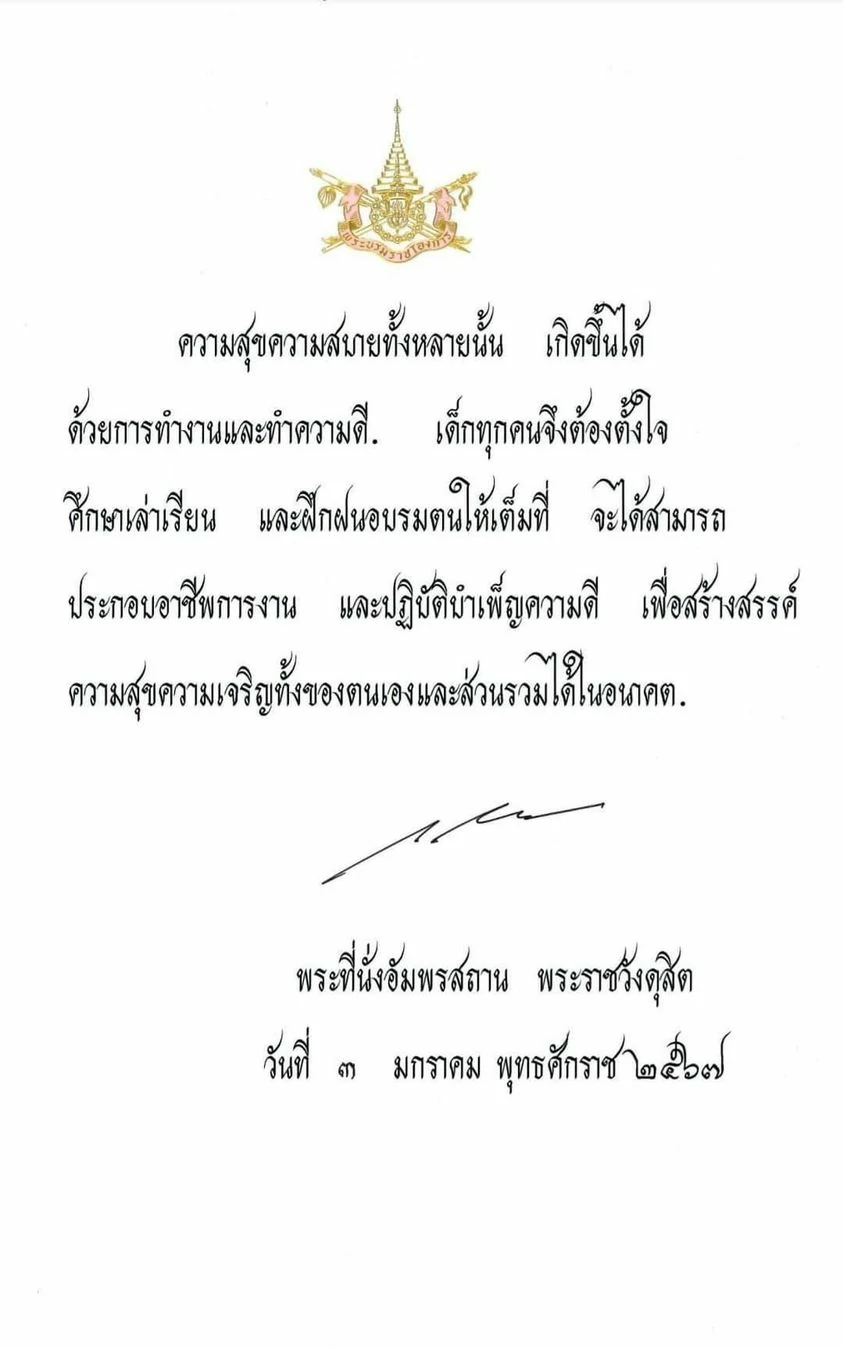 พระบรมราชโองการ
ความสุขความสบายทั้งหลายนั้น เกิดขึ้นได้
ด้วยการทำงานและทำความดี. เด็กทุกคนจึงต้องตั้งใจ
ศึกษาเล่าเรียน และฝึกฝนอบรมตนให้เต็มที่ จะได้สามารถ
ประกอบอาชีพการงาน และปฏิบัติบำเพ็ญความดี เพื่อสร้างสรรค์
ความสุขความเจริญทั้งของตนเองและส่วนรวมได้ในอนาคต.
พระที่นั่งอัมพรสถาน พระราชวังดุสิต
วันที่ ๓ มกราคม พุทธศักราช ๒๕๖๗